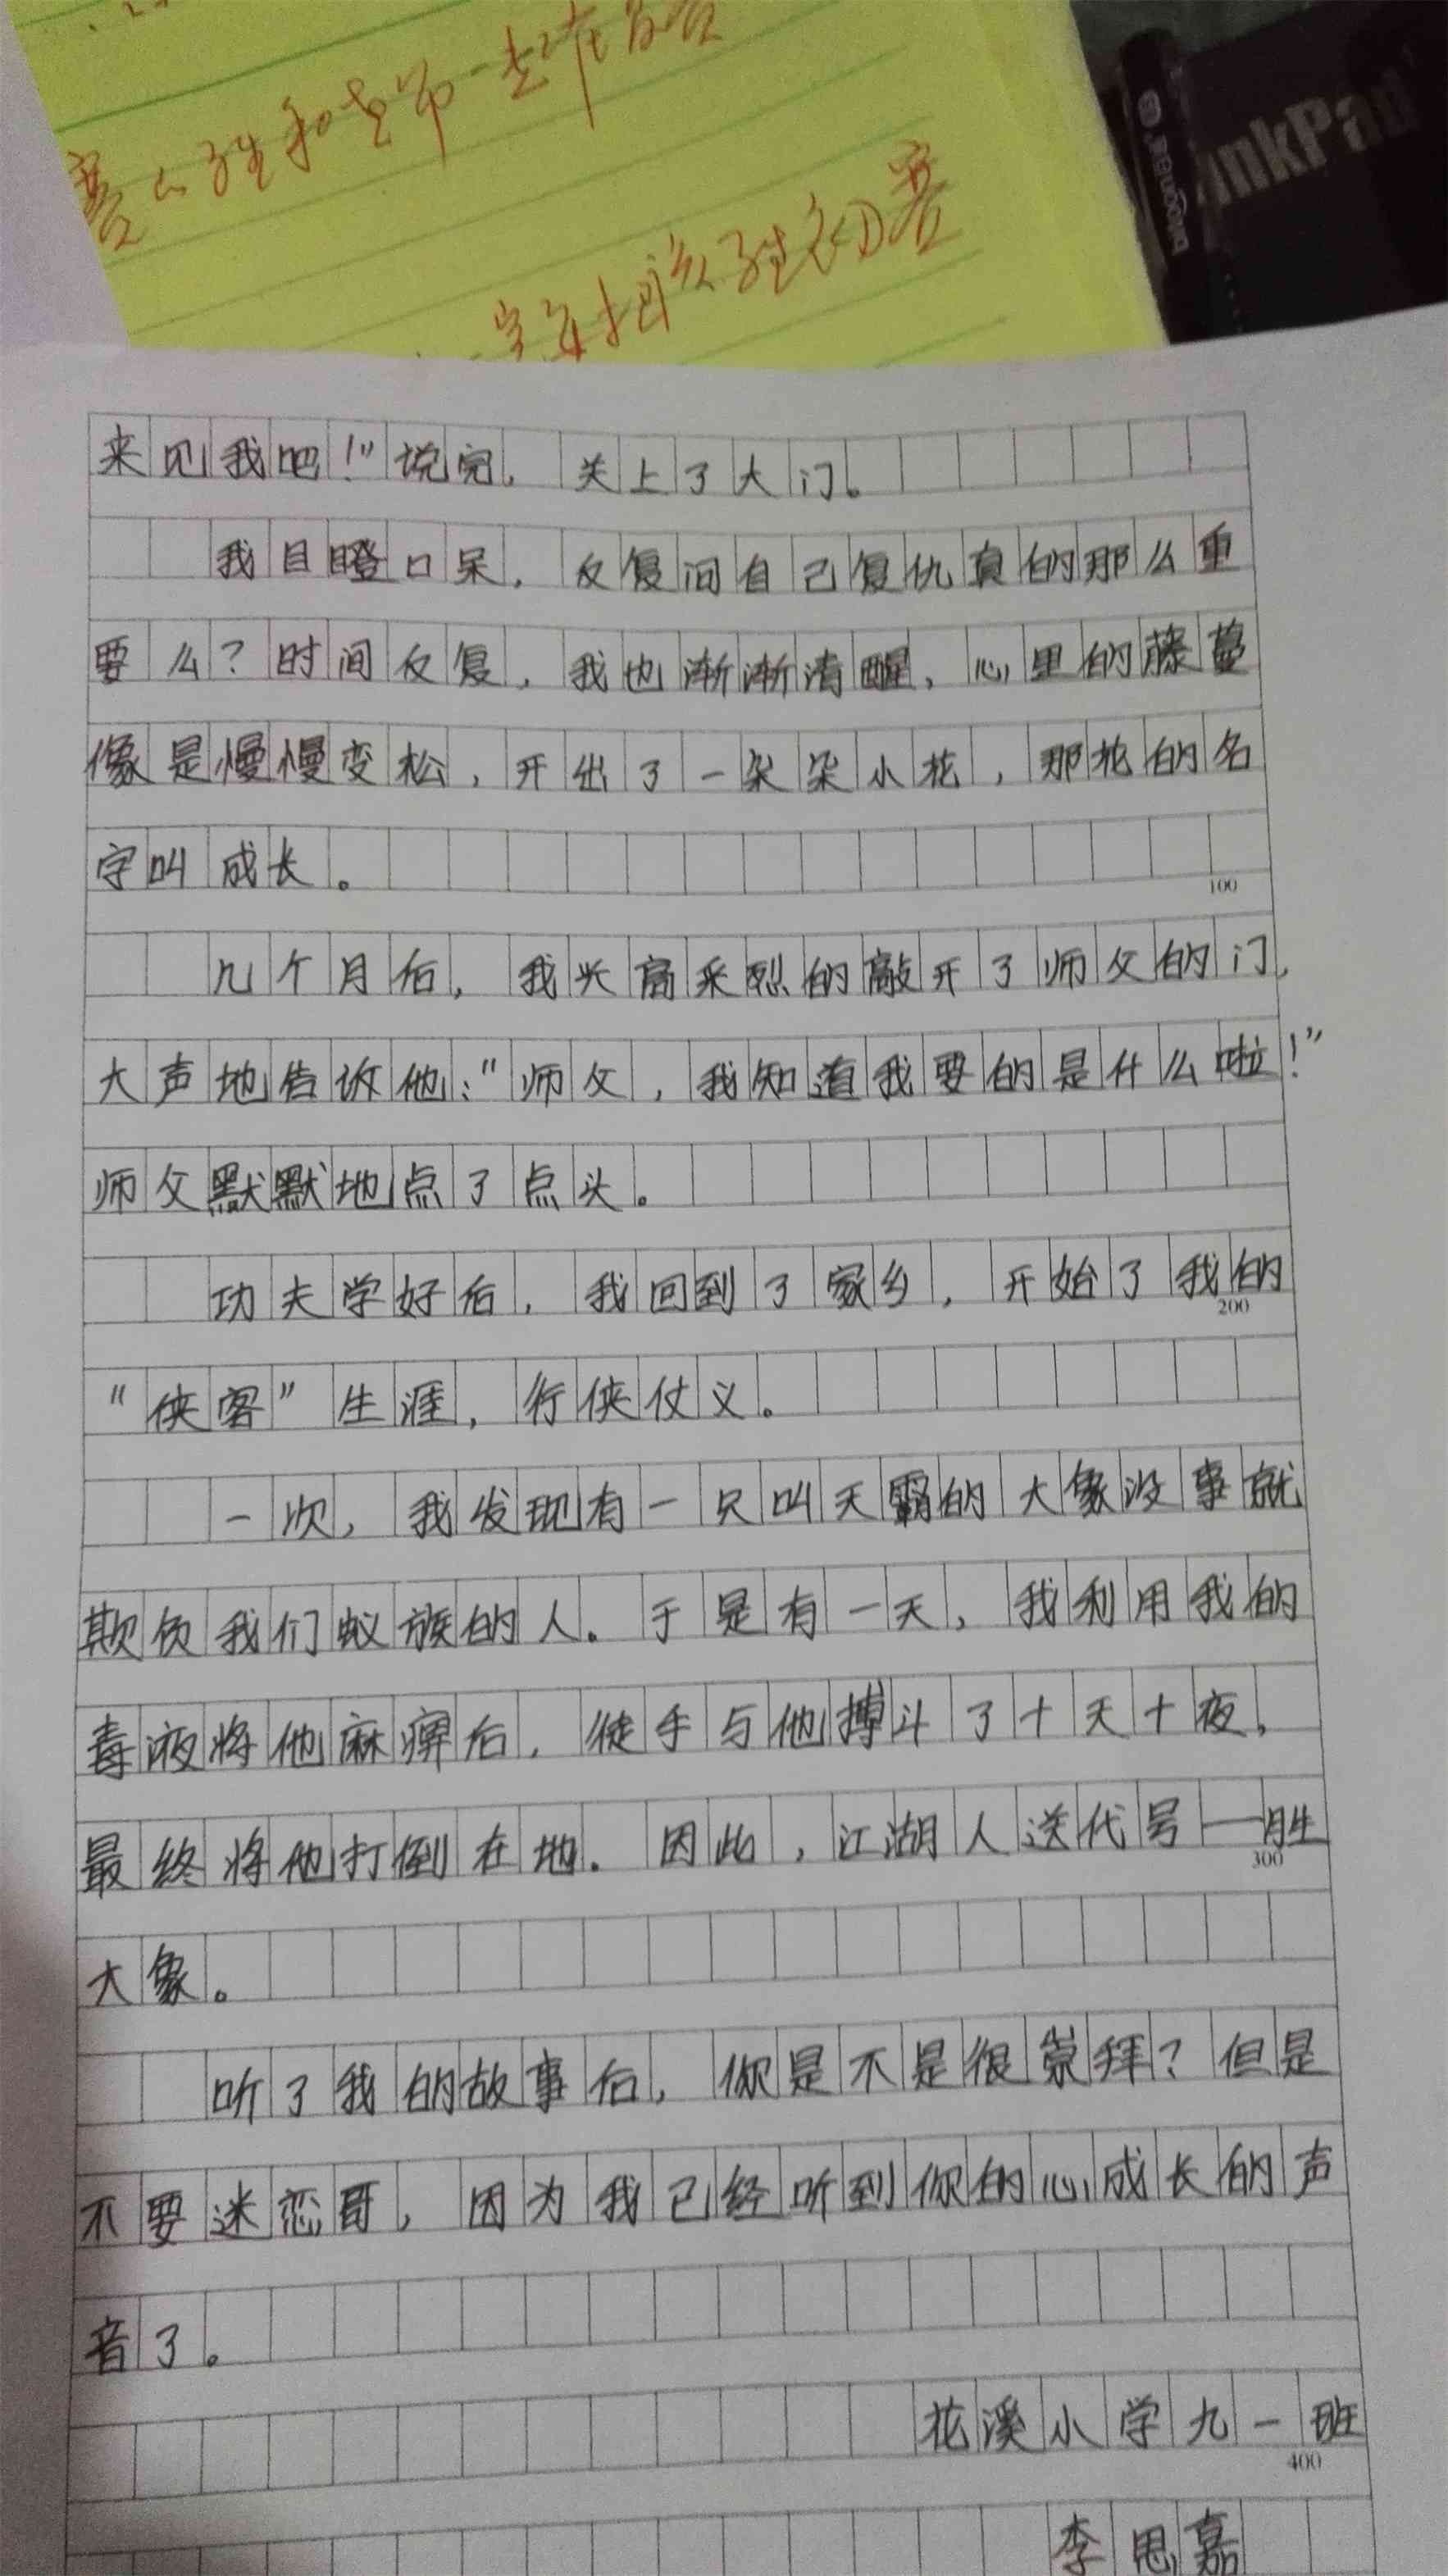 赛
学生和老师一起在
学生初赛
inkPad
来见我吧！”说完，关上了大门。
我目瞪口呆，反复问自己复仇真的那么重
要么？时间反复，我也渐渐清醒，心里的藤蔓
像是慢慢变松，开出了一朵朵小花，那花的名
字叫成长。
100
几个月后，我兴高采烈的敲开了师父的门，
大声地告诉他：“师父，我知道我要的是什么啦！”
师父默默地点了点头。
功夫学好后，我回到了家乡，开始了我的
200
“侠客”生涯，行侠仗义。
一次，我发现有一只叫天霸的大象没事就
欺负我们蚁族的人。于是有一天，我利用我的
毒液将他麻痹后，徒手与他搏斗了十天十夜，
最终将他打倒在地。因此，江湖人送代号—胜
300
大象。
听了我的故事后，你是不是很崇拜？但是
不要迷恋哥，因为我已经听到你的心成长的声
音了。
花溪小学九一班
400
李思嘉